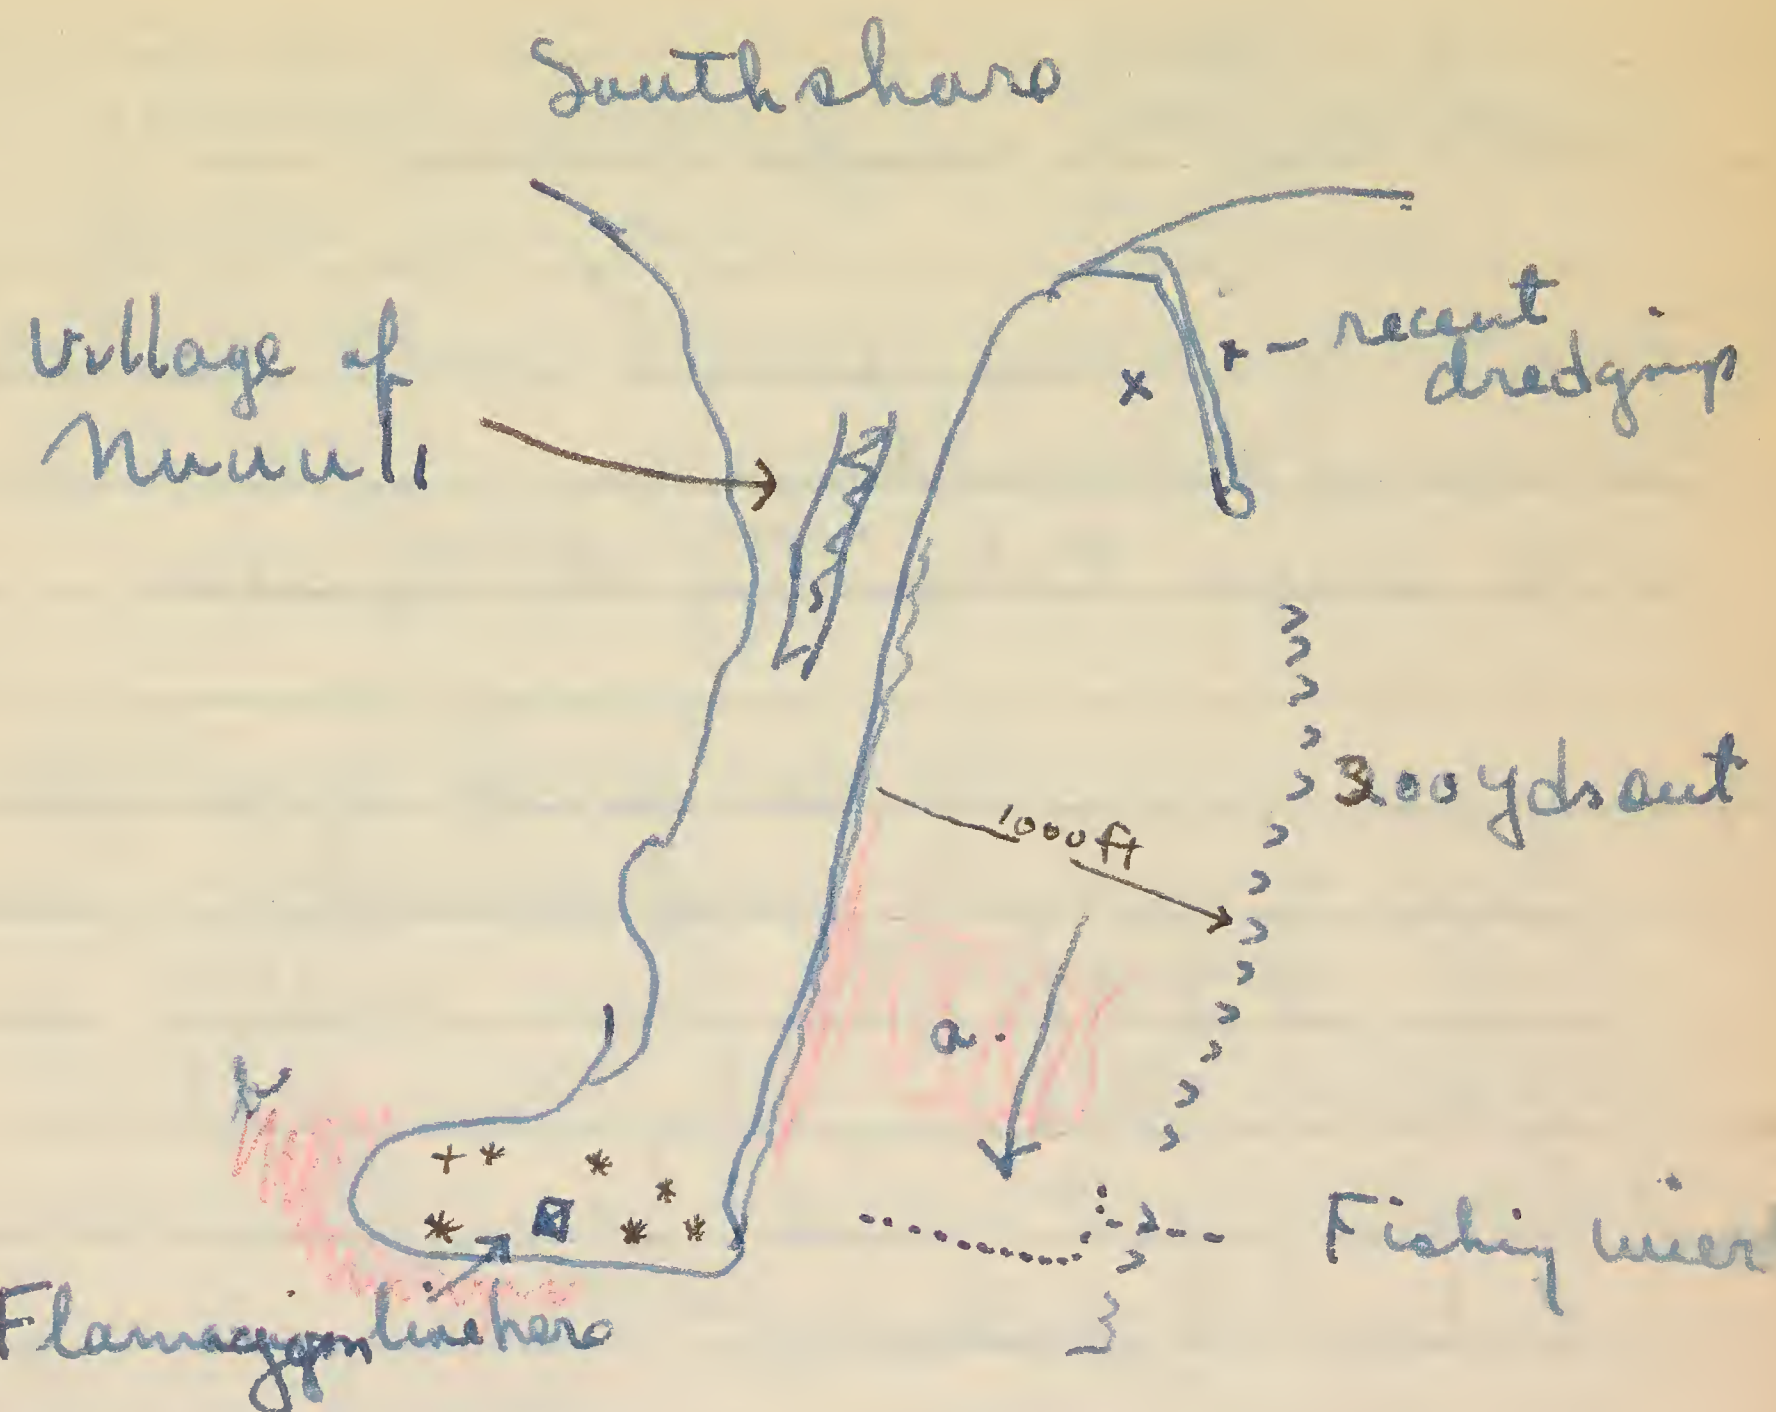 South shore
Village of
Nuuuli
x - recent
dredgings
x
300 yds out
1000 ft
a.
Fishing
live here